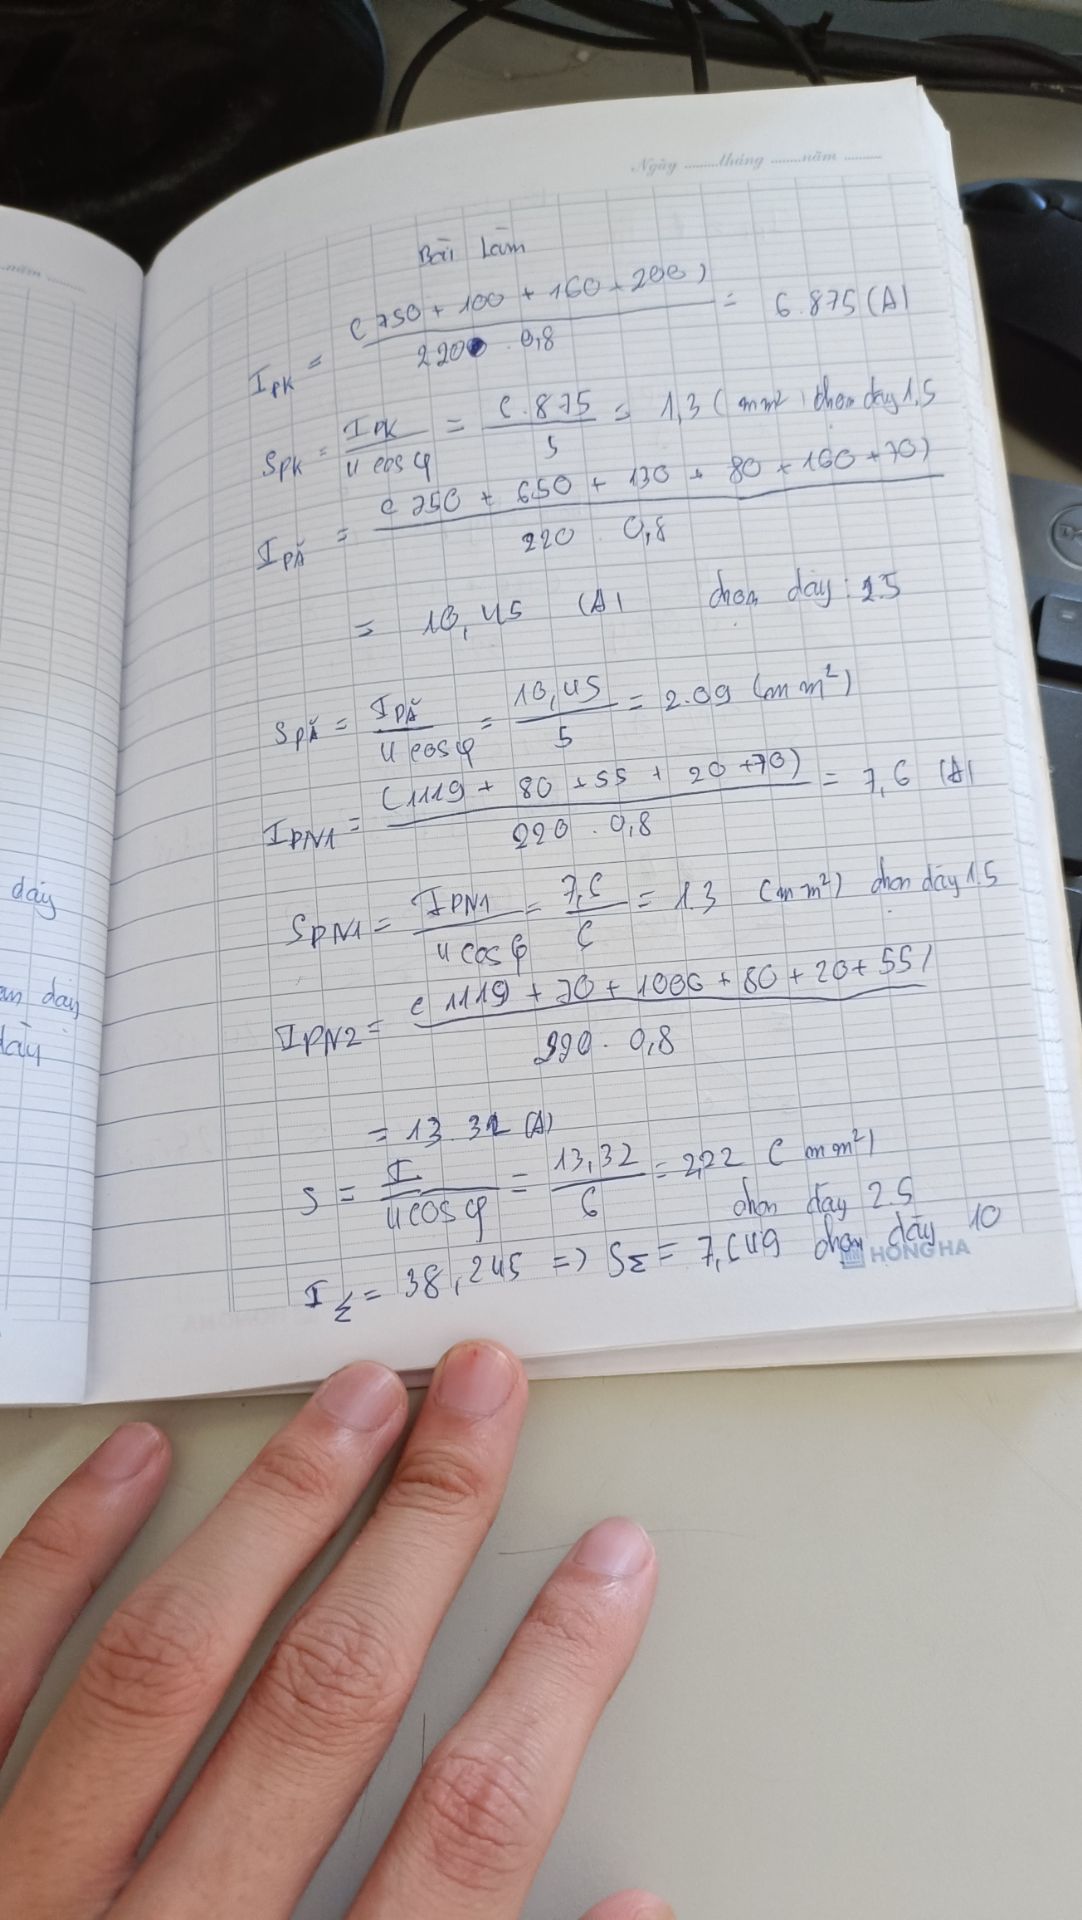 Ngày ........tháng .......năm .........
...năm ........
Bài Làm
I_PK = (750 + 100 + 160 + 200) / 220 . 0,8 = 6.875 (A)
S_PK = I_PK / u cos φ = 6.875 / 5 = 1,3 (mm² chọn dây 1,5
I_PĂ = (750 + 650 + 130 + 80 + 160 + 70) / 220 . 0,8
= 10,45 (A) chọn dây : 2.5
S_PĂ = I_PĂ / u cos φ = 10,45 / 5 = 2.09 (mm²)
I_PN1 = (1119 + 80 + 55 + 20 + 70) / 220 . 0,8 = 7,6 (A)
S_PN1 = I_PN1 / u cos φ = 7,6 / 6 = 1.3 (mm²) chọn dây 1.5
I_PN2 = (1119 + 70 + 1006 + 80 + 20 + 55) / 220 . 0,8
= 13.32 (A)
S = I / u cos φ = 13,32 / 6 = 2,22 (mm²)
chọn dây 2.5
I_Σ = 38,245 => S_Σ = 7,649 chọn dây 10
HONG HA
dây
dây
dây